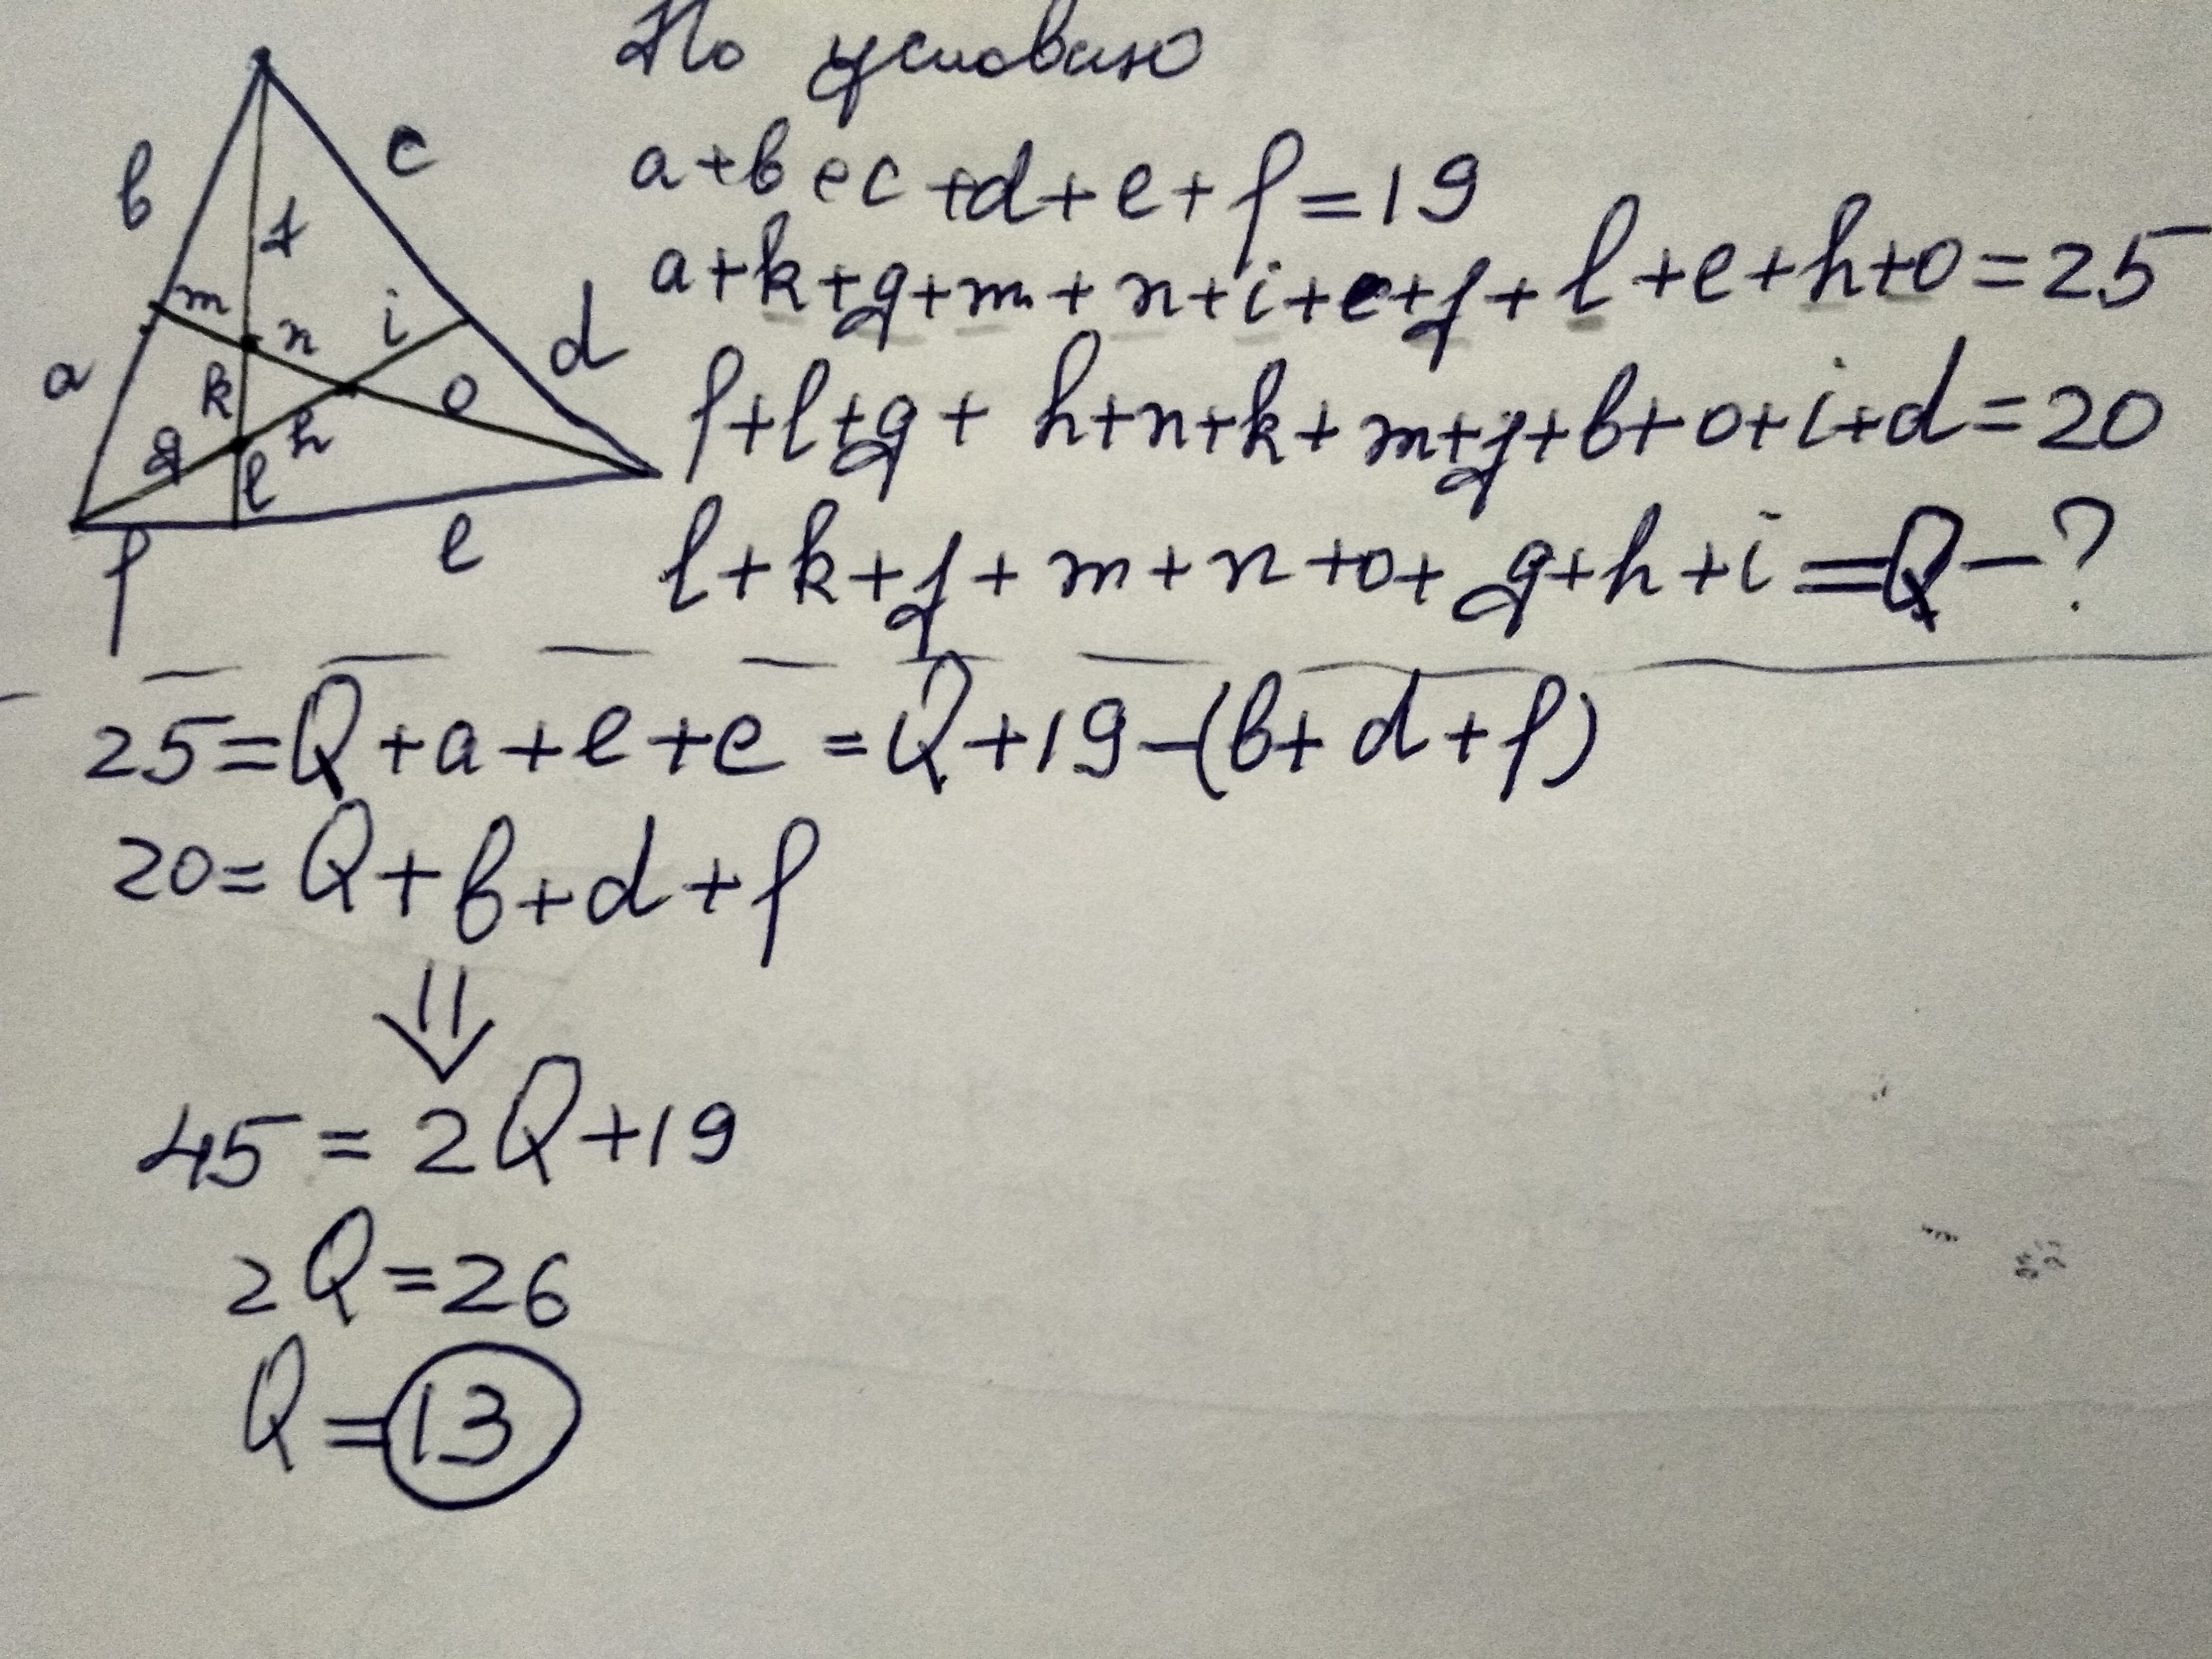 По условию
a+bec+d+e+f=19
a+k+g+m+n+i+c+j+l+e+h+o=25
f+l+g+h+n+k+m+j+b+o+i+d=20
l+k+j+m+n+o+g+h+i=Q-?
b
c
j
m
n
i
d
a
k
o
g
h
l
f
e
25=Q+a+e+c=Q+19-(b+d+f)
20=Q+b+d+f
⇓
45=2Q+19
2Q=26
Q=13